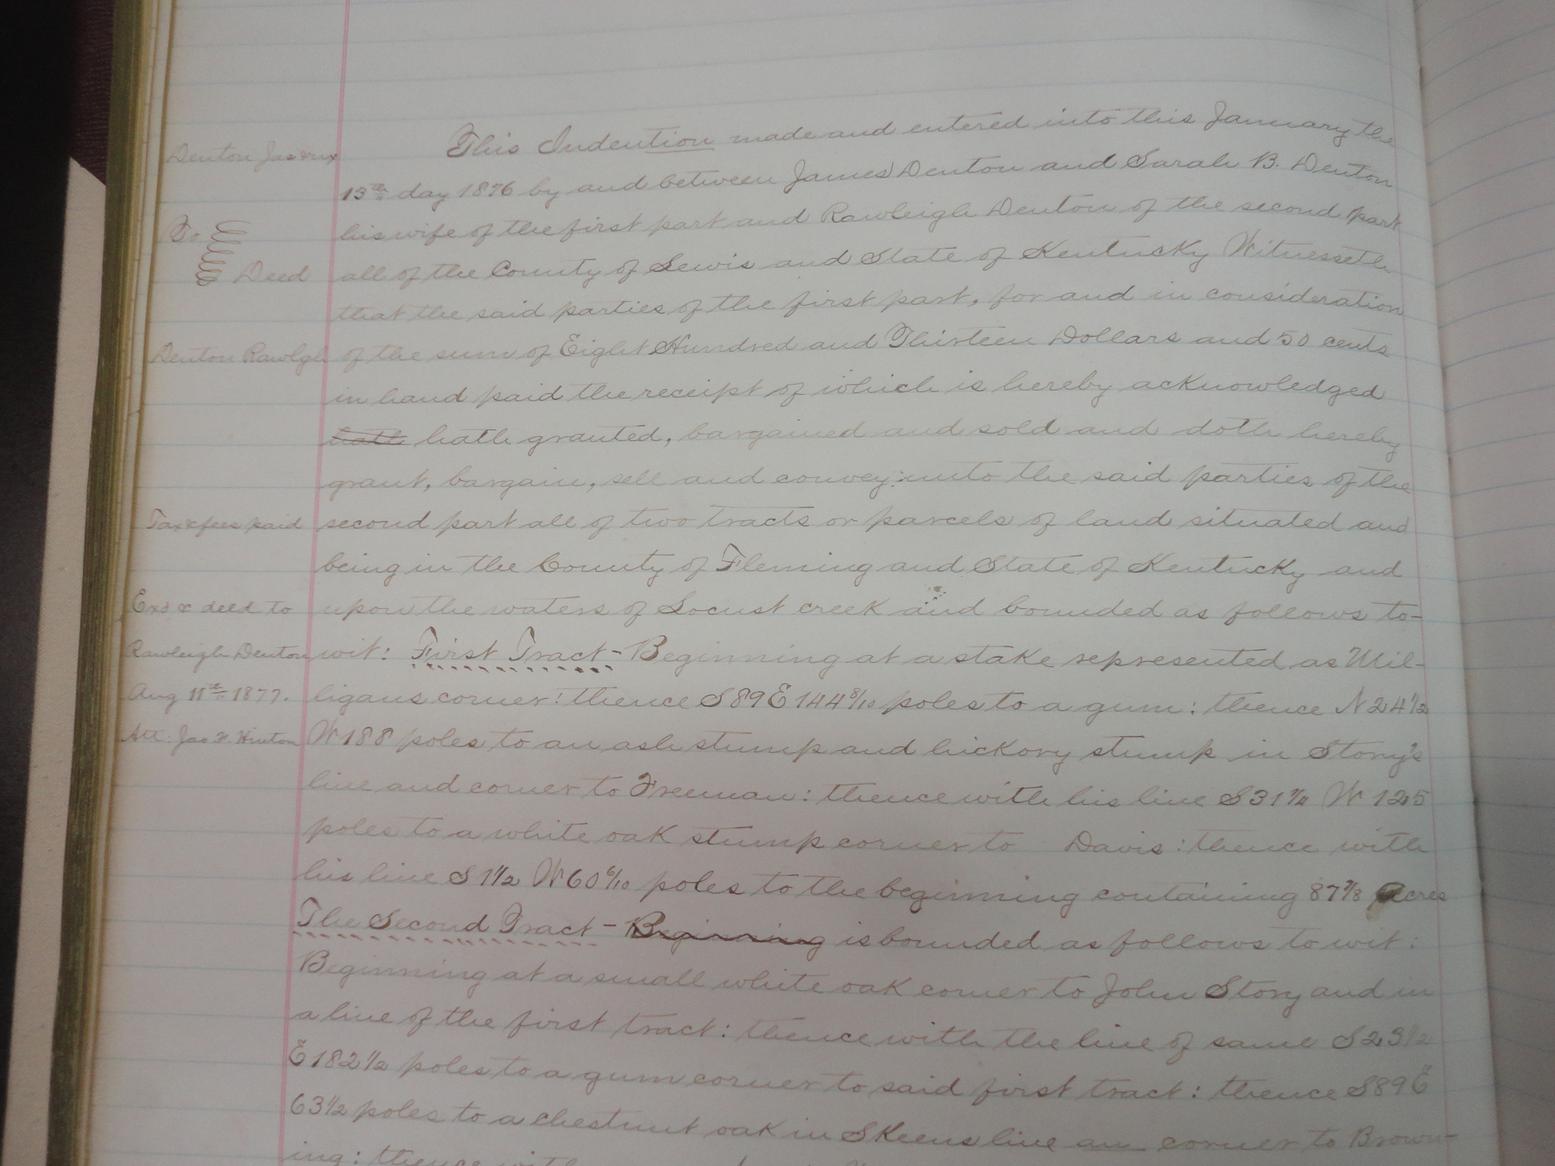 Denton Jas &ux
To
Deed
Denton Rawlgh
Tax & fees paid
Exd & deed to
Rawleigh Denton
Aug 11th 1877.
Att. Jas H. Hinton
This Indention made and entered into this January the
13th day 1876 by and between James Denton and Sarah B. Denton
his wife of the first part and Rawleigh Denton of the second part
all of the County of Lewis and State of Kentucky Witnesseth
that the said parties of the first part, for and in consideration
of the sum of Eight Hundred and Thirteen Dollars and 50 cents
in hand paid the receipt of which is hereby acknowledged
hath hath granted, bargained and sold and doth hereby
grant, bargain, sell and convey: unto the said parties of the
second part all of two tracts or parcels of land situated and
being in the County of Fleming and State of Kentucky and
upon the waters of Locust creek and bounded as follows to-
wit: First Tract- Beginning at a stake represented as Mil-
ligans corner: thence S89E 144 8/10 poles to a gum: thence N24 1/2
W188 poles to an ash stump and hickory stump in Story's
line and corner to Freeman: thence with his line S31 1/4 W 125
poles to a white oak stump corner to Davis: thence with
his line S 1 1/2 W60 6/10 poles to the beginning containing 87 7/8 Acres
The Second Tract - Beginning is bounded as follows to wit:
Beginning at a small white oak corner to John Story and in
a line of the first tract: thence with the line of same S23 1/2
E182 1/2 poles to a gum corner to said first tract: thence S89E
63 1/2 poles to a chestnut oak in Skeens line an corner to Brown-
ing: thence with